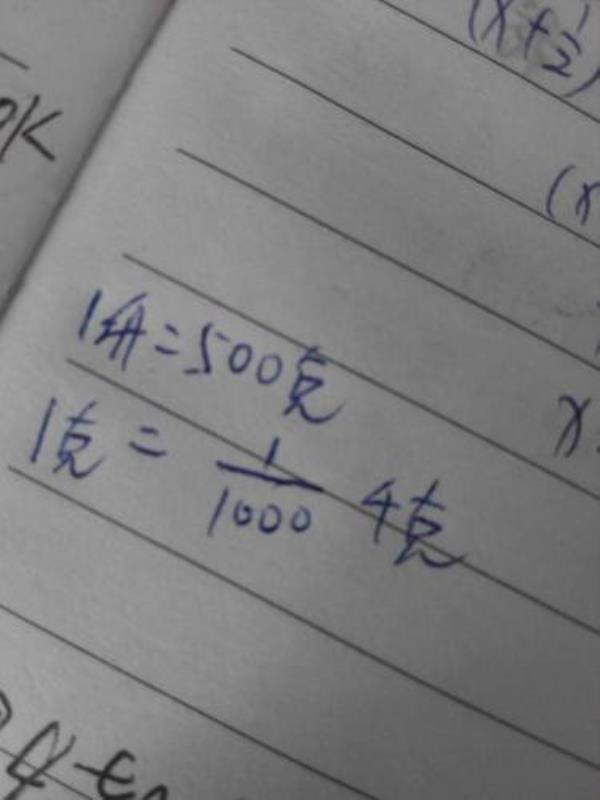 (x+\frac{1}{2})
OK
(x
1斤=500克
x
1克=\frac{1}{1000}千克